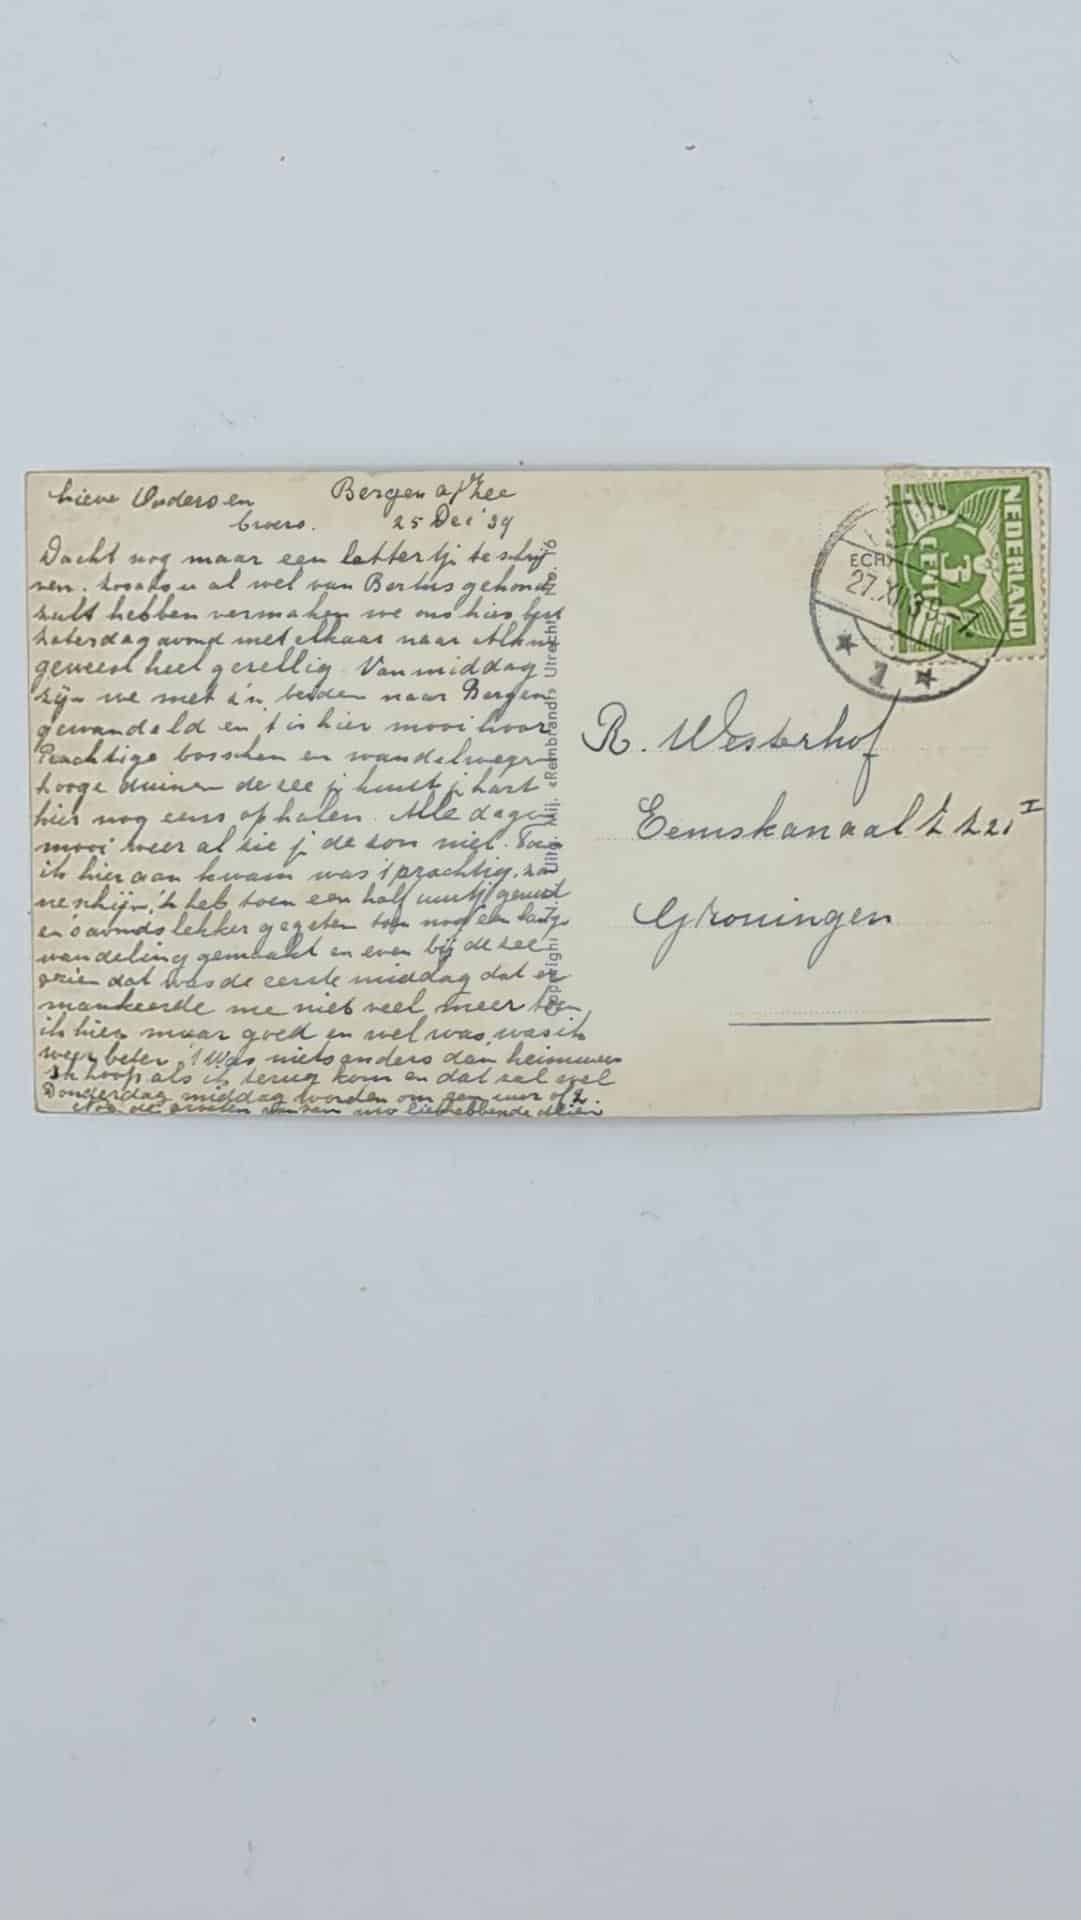 Lieve Ouders en
broers.
Bergen a/Zee
25 Dec '39
Dacht nog maar een lettertje te schrij
ven. Zooals u al wel van Bertus gehoord
zult hebben vermaken we ons hier
Zaterdagavond met elkaar naar
geweest heel gezellig. Van middag
zijn we met z'n beiden naar Bergen
gewandeld en 't is hier mooi hoor
Prachtige bosschen en wandelwegen
hooge duinen de zee je kunt je hart
hier nog eens ophalen. Alle dagen
mooi weer al zie je de zon niet. Toen
ik hier aan kwam was 't prachtig, zon
neschijn, 'k heb toen een half uurtje gerust
en 's avonds lekker gegeten toen nog een lange
wandeling gemaakt en even bij de zee
dat was de eerste middag dat er
mankeerde me niet veel meer toen
ik hier maar goed en wel was, was ik
weer beter, 't Was niets anders dan heimwee
Ik hoop als ik terug kom en dat zal wel
Donderdag middag worden om een uur of 2.
Nog de groeten van uw liefhebbende
R. Westerhof
Eemskanaal Z Z 21 I
Groningen
NEDERLAND
3
CENT
27.XII.39.-7
1
Rembrandt Utrecht